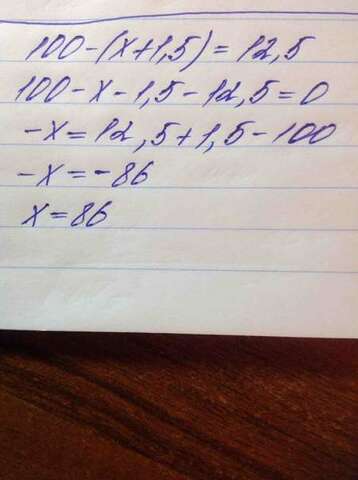 100-(x+1,5)=12,5
100-x-1,5-12,5=0
-x=12,5+1,5-100
-x=-86
x=86